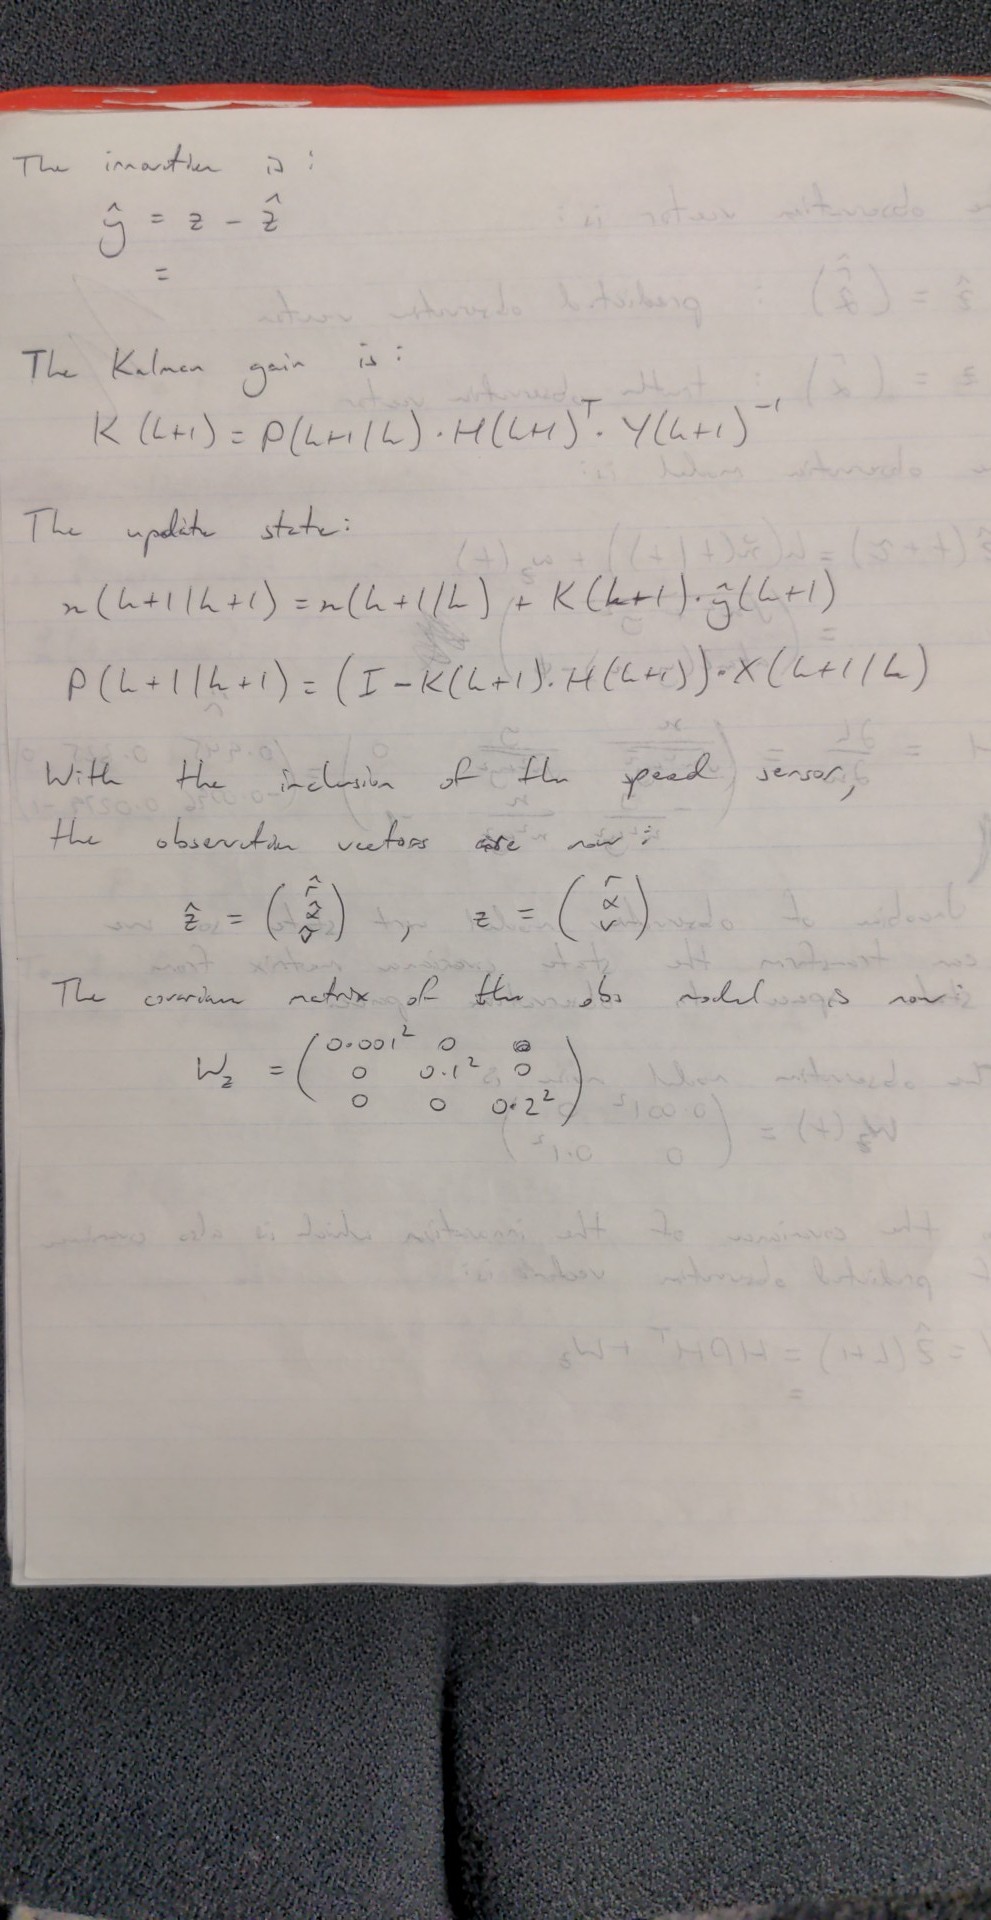 The innovation is:
ŷ = z - ẑ
=
The Kalman gain is:
K(k+1) = P(k+1|k) · H(k+1)ᵀ · Y(k+1)⁻¹
The update state:
x(k+1|k+1) = x(k+1|k) + K(k+1) · ŷ(k+1)
P(k+1|k+1) = (I - K(k+1) · H(k+1)) · X(k+1|k)
With the inclusion of the speed sensor,
the observation vectors are now:
ẑ = (r̂ α̂ v̂), z = (r α v)
The covariance matrix of the obs model is now:
W_z = (0.001² 0 0
0 0.1² 0
0 0 0.2²)